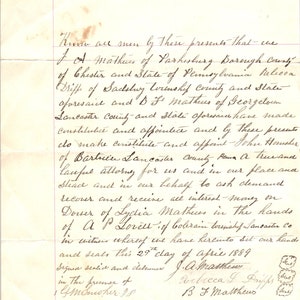 Know all men by these presents that we
J A Mathews of Parkesburg Borough County
of Chester and State of Pennsylvania
of Sadsbury township county and State
aforesaid and B F Mathews of Georgetown
Lancaster county and State aforesaid have made
constituted and appointed and by these presents
do make constitute and appoint John
of Lancaster County a true and
lawful attorney for us and in our place and
stead and in our behalf to ask demand
recover and receive interest money on
Dower of Lydia Mathews in the hands
of A P of Colerain County Lancaster Co
in witness whereof we have hereunto set our hands
and seals this day of April 1889
Signed sealed and delivered J. A. Mathews
in the presence of
B F Mathews